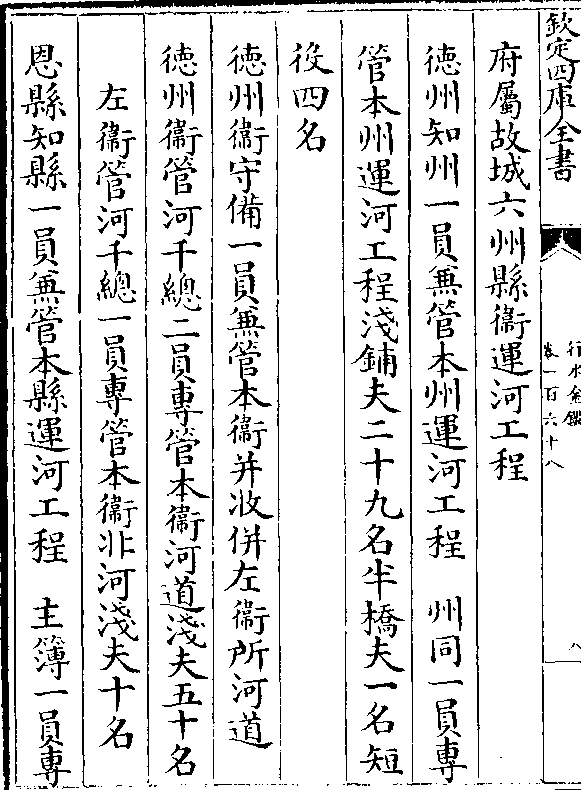 欽定四庫全書
行水金鑑
卷一百六十八
八
府屬故城六州縣衞運河工程
徳州知州一員兼管本州運河工程　州同一員專
管本州運河工程淺鋪夫二十九名半橋夫一名短
役四名
徳州衞守備一員兼管本衞并收併左衞所河道
徳州衞管河千總二員專管本衞河道淺夫五十名
左衞管河千總一員專管本衞非河淺夫十名
恩縣知縣一員兼管本縣運河工程　主簿一員專